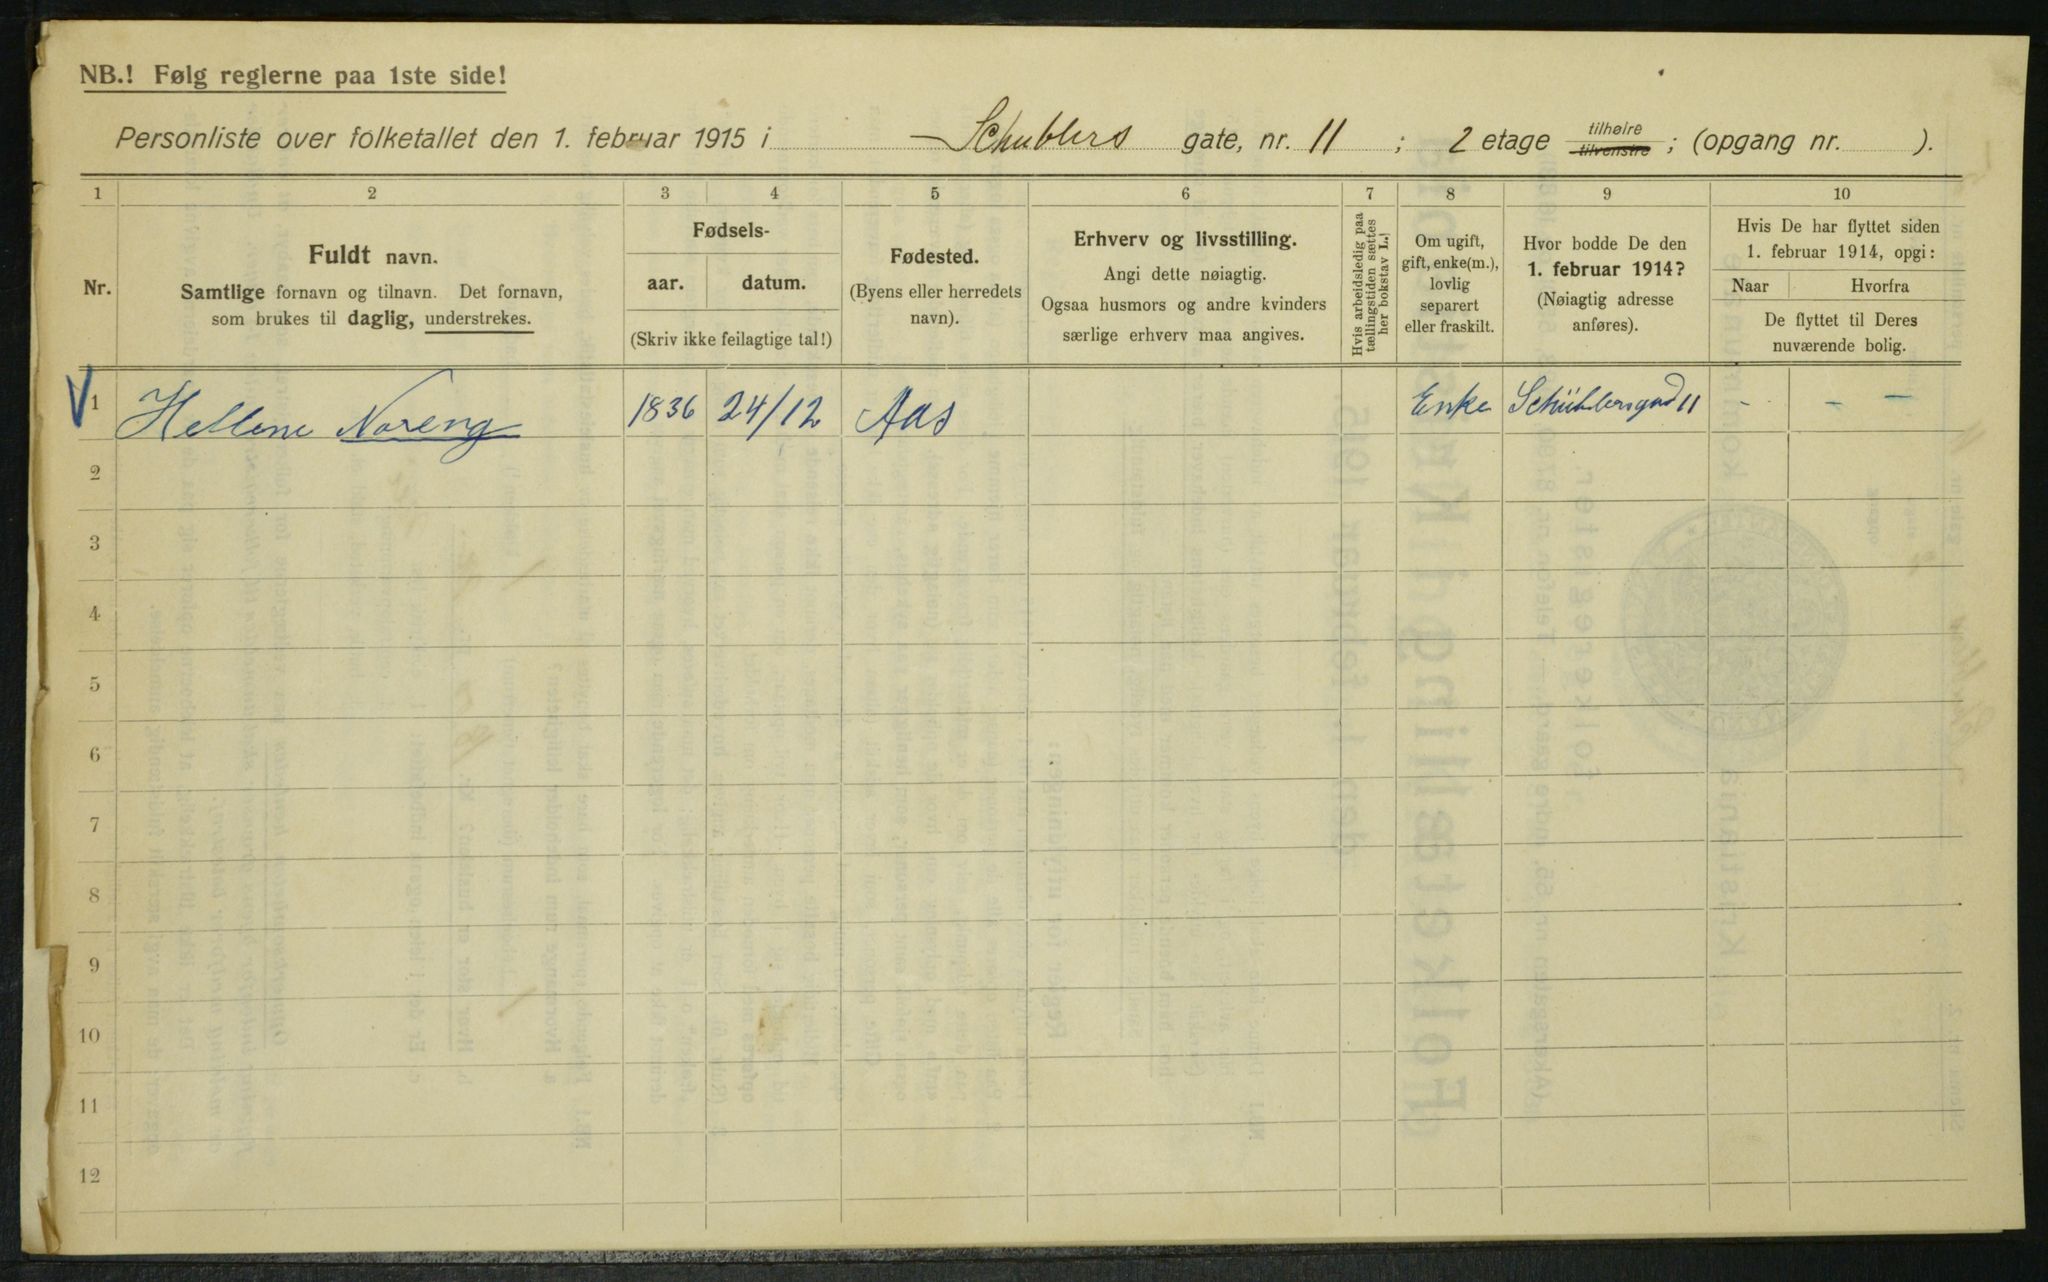 NB.! Følg reglerne paa 1ste side!
Personliste over folketallet den 1. februar 1915 i Schüblers gate, nr. 11 ; 2 etage tilhøire tilvenstre ; (opgang nr. ).
1 2 3 4 5 6 7 8 9 10
Nr.
Fuldt navn.
Samtlige fornavn og tilnavn. Det fornavn,
som brukes til daglig, understrekes.
Fødsels-
aar. datum.
(Skriv ikke feilagtige tal!)
Fødested.
(Byens eller herredets
navn).
Erhverv og livsstilling.
Angi dette nøiagtig.
Ogsaa husmors og andre kvinders
særlige erhverv maa angives.
Hvis arbeidsledig paa
tællingstiden sættes
her bokstav L.
Om ugift,
gift, enke(m.),
lovlig
separert
eller fraskilt.
Hvor bodde De den
1. februar 1914?
(Nøiagtig adresse
anføres).
Hvis De har flyttet siden
1. februar 1914, opgi:
Naar Hvorfra
De flyttet til Deres
nuværende bolig.
1 Hellene Noreng 1836 24/12 Aas Enke Schüblersgad 11 - - -
2
3
4
5
6
7
8
9
10
11
12